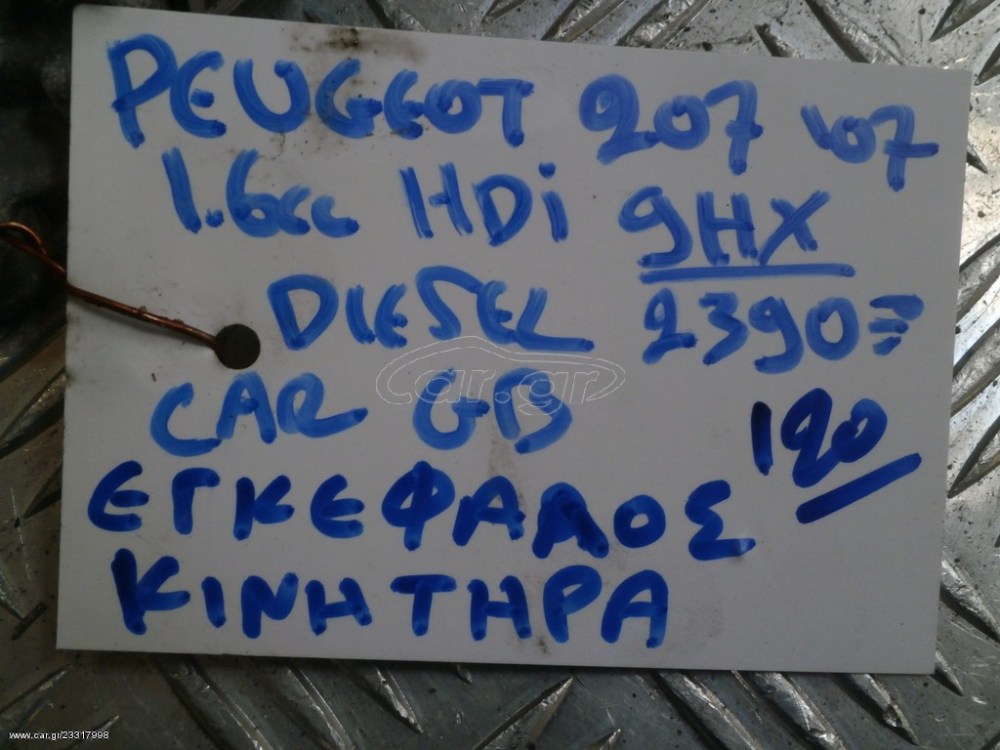 PEUGEOT 207 '07
1.6cc HDi 9HX
DIESEL 2390
CAR GB
120
ΕΓΚΕΦΑΛΟΣ
ΚΙΝΗΤΗΡΑ
car.gr
www.car.gr/23317998